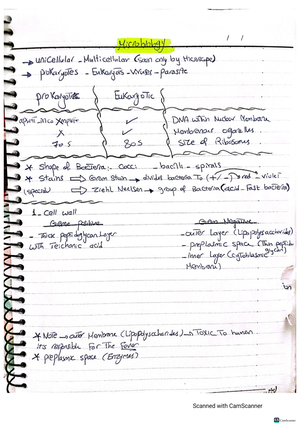 Microbiology
/ /
→ unicellular - Multicellular (seen only by microscope)
→ prokaryotes - Eukaryotes - Viruses - parasite
prokaryotes Eukaryotic
X ✓ DNA within Nuclear Membrane
X ✓ Membranous organelles
70 S 80 S Size of Ribosomes
* Shape of Bacteria: Cocci - bacilli - spirals
* Stains → Gram Stain → divides bacteria To (+/-) red - violet
(special) → Ziehl Neelsen → group of Bacteria (acid-fast bacteria)
1- Cell wall
Gram positive Gram Negative
- Thick peptidoglycan Layer - outer Layer (Lipopolysaccharides)
with Teichoic acid - preplasmic space (Thin peptidoglycan)
- inner Layer (cytoplasmic Membrane)
* Note → outer Membrane (Lipopolysaccharides) → Toxic To human
it's responsible For The Fever
* preplasmic space (Enzymes)
Scanned with CamScanner
CamScanner